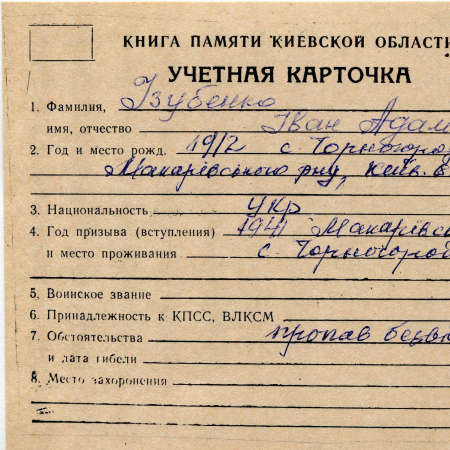 КНИГА ПАМЯТИ КИЕВСКОЙ ОБЛАСТИ
УЧЕТНАЯ КАРТОЧКА
1. Фамилия, Ізубенко
имя, отчество Іван Адам
2. Год и место рожд. 1912 с. Чорногород
Макарівського р-ну, Київ.
3. Национальность укр
4. Год призыва (вступления) 1941 Макарівсь
и место проживания с. Чорногород
5. Воинское звание
6. Принадлежность к КПСС, ВЛКСМ
7. Обстоятельства пропав безвіс
и дата гибели
8. Место захоронения